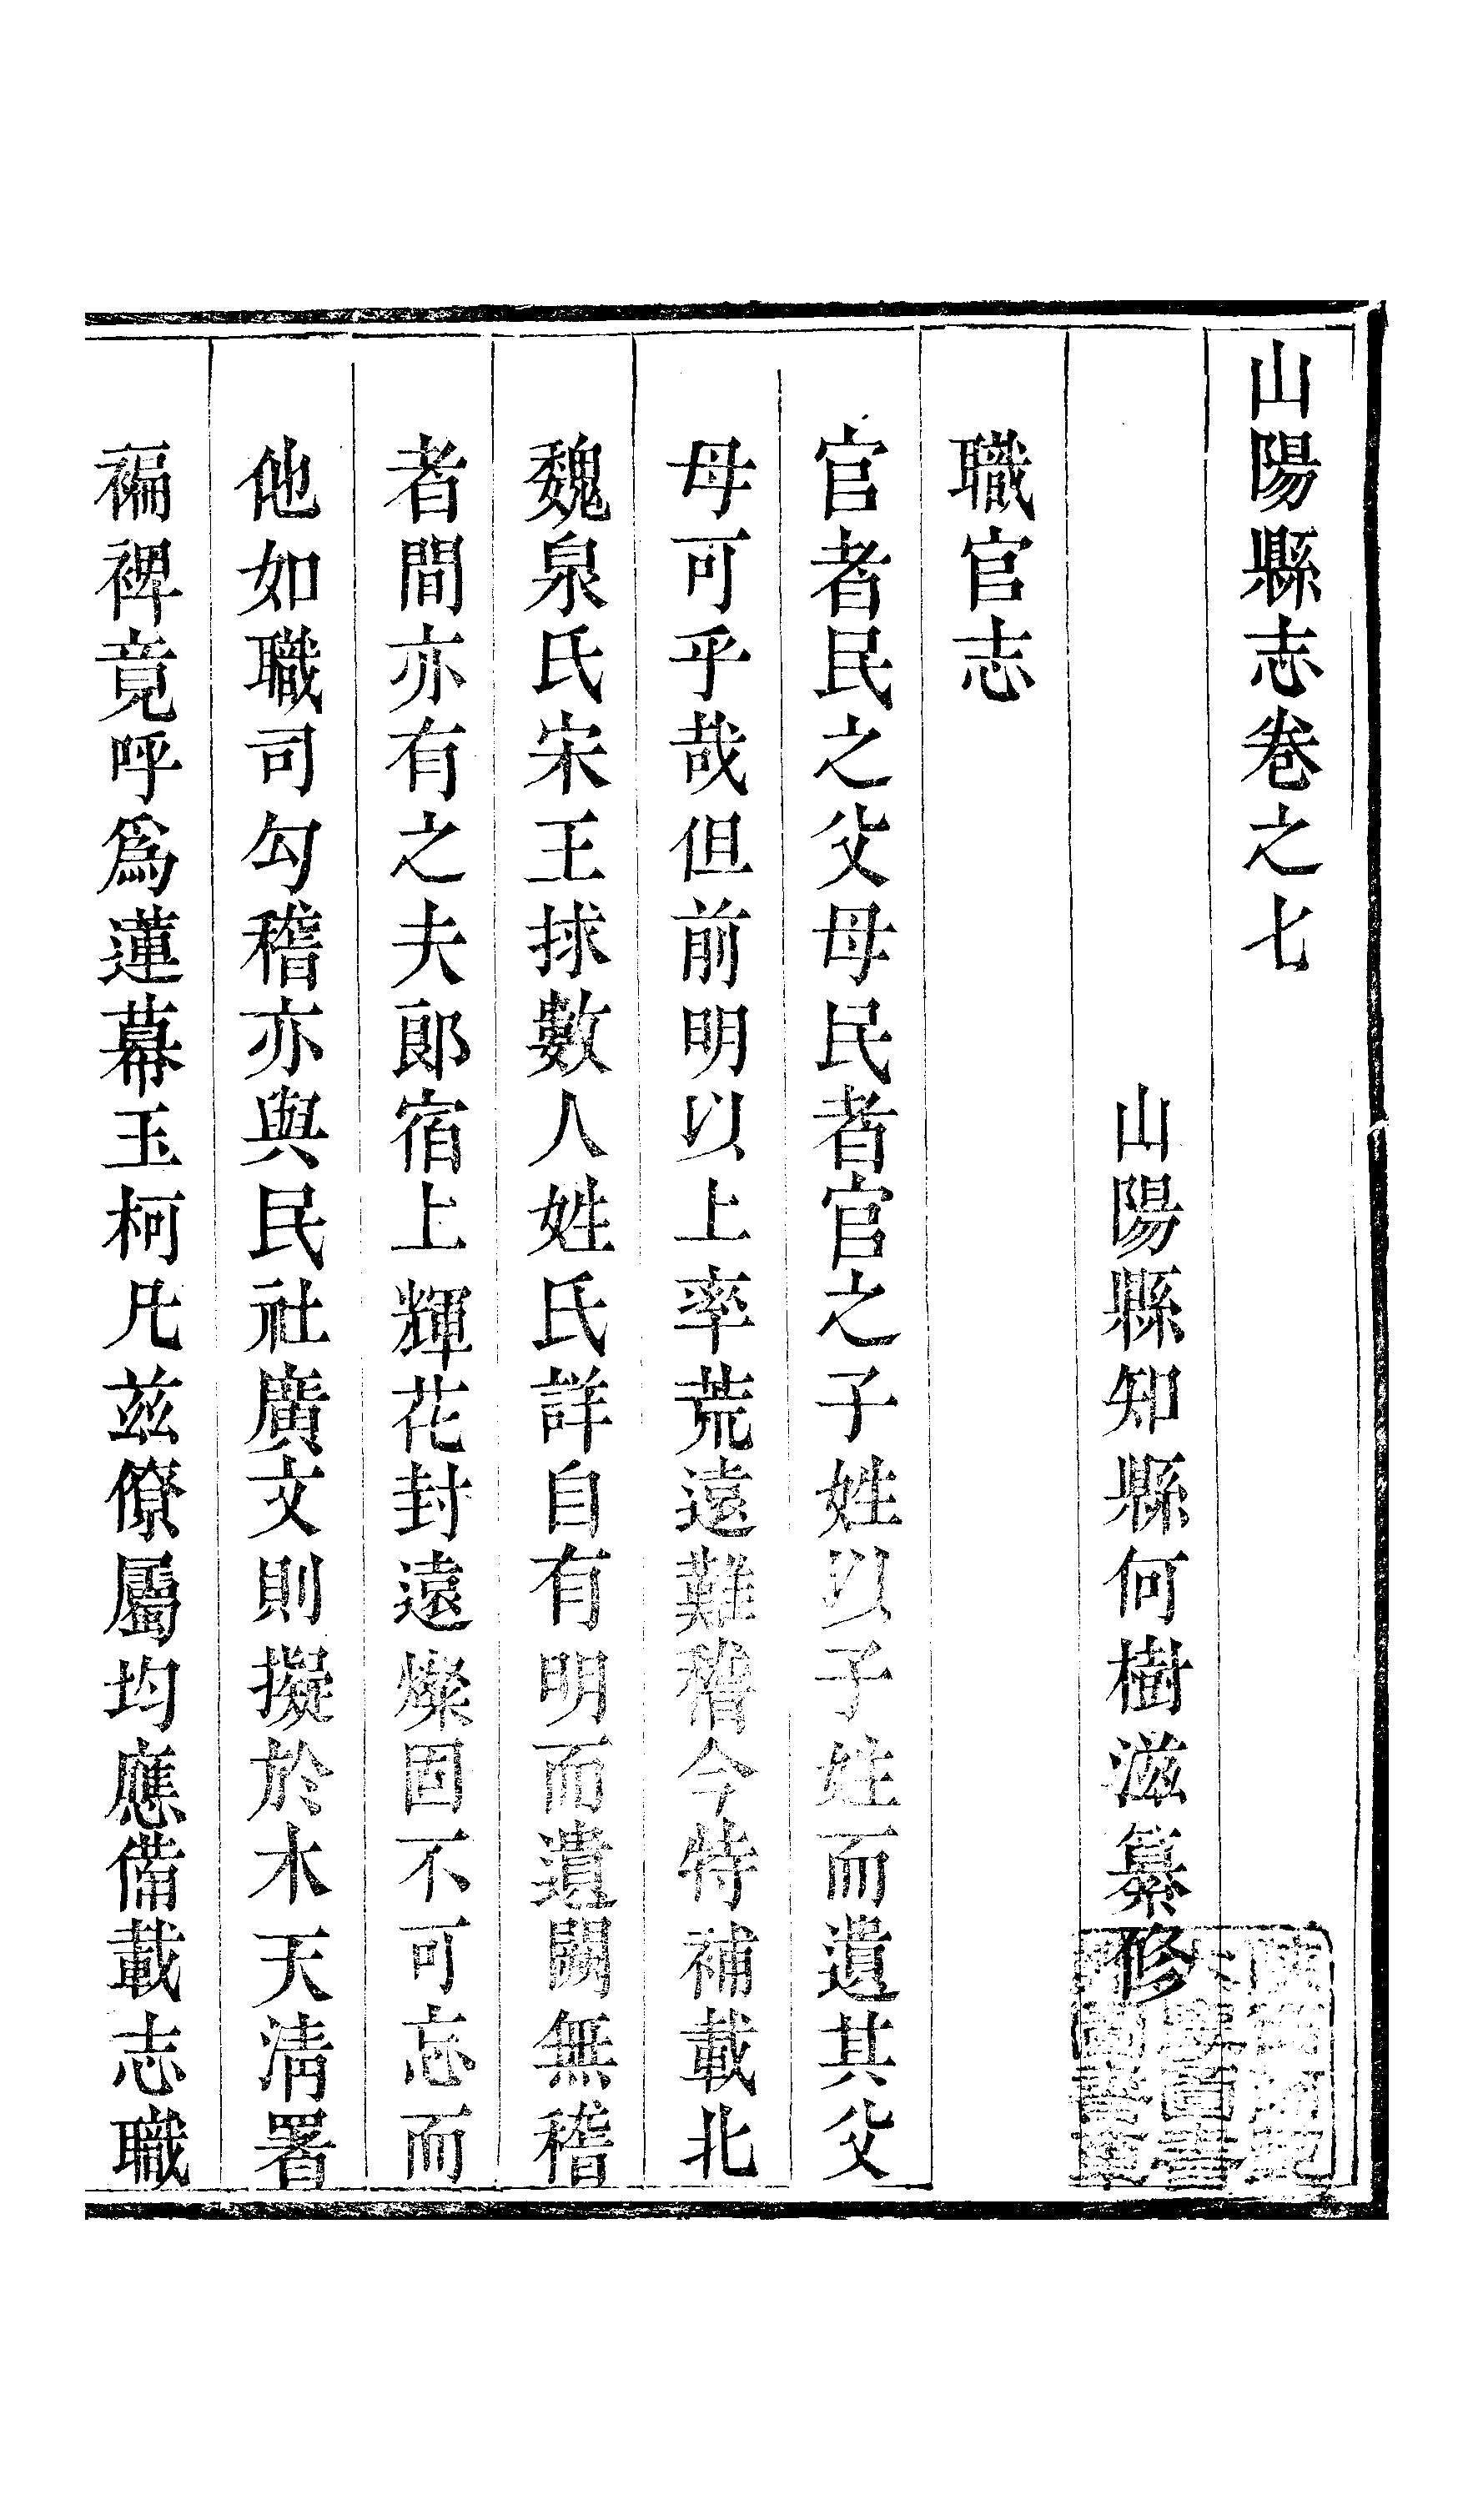 山陽縣志卷之七
山陽縣知縣何樹滋纂修
職官志
官者民之父母民者官之子姓以子姓而遺其父
母可乎哉但前明以上率荒遠難稽今特補載北
魏泉氏宋王捄數人姓氏詳自有明而遺闕無稽
者間亦有之夫郎宿上輝花封遠燦固不可忘而
他如職司勾稽亦與民社廣文則擬於木天淸署
褊裨竟呼爲蓮幕玉柯凡兹僚屬均應備載志職